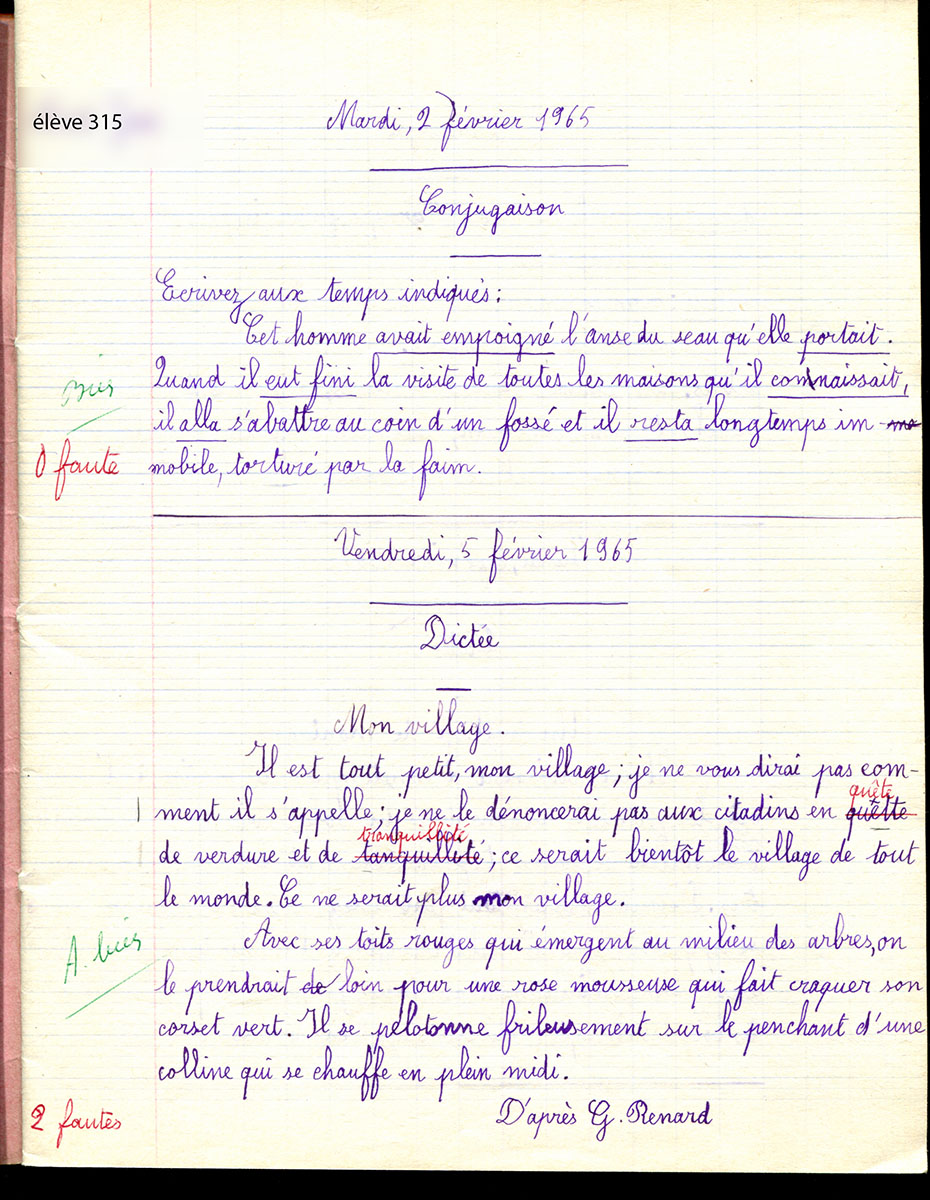 élève 315
Mardi, 2 février 1965
Conjugaison
Ecrivez aux temps indiqués :
Cet homme avait empoigné l'anse du seau qu'elle portait.
Quand il eut fini la visite de toutes les maisons qu'il connaissait,
il alla s'abattre au coin d'un fossé et il resta longtemps im-
0 faute
mobile, torturé par la faim.
Vendredi, 5 février 1965
Dictée
Mon village.
Il est tout petit, mon village ; je ne vous dirai pas com-
quête
ment il s'appelle ; je ne le dénoncerai pas aux citadins en quètte
tranquillité
de verdure et de tanquillité ; ce serait bientôt le village de tout
le monde. Ce ne serait plus mon village.
A. bien
Avec ses toits rouges qui émergent au milieu des arbres, on
le prendrait de loin pour une rose mousseuse qui fait craquer son
corset vert. Il se pelotonne frileusement sur le penchant d'une
colline qui se chauffe en plein midi.
2 fautes
D'après G. Renard